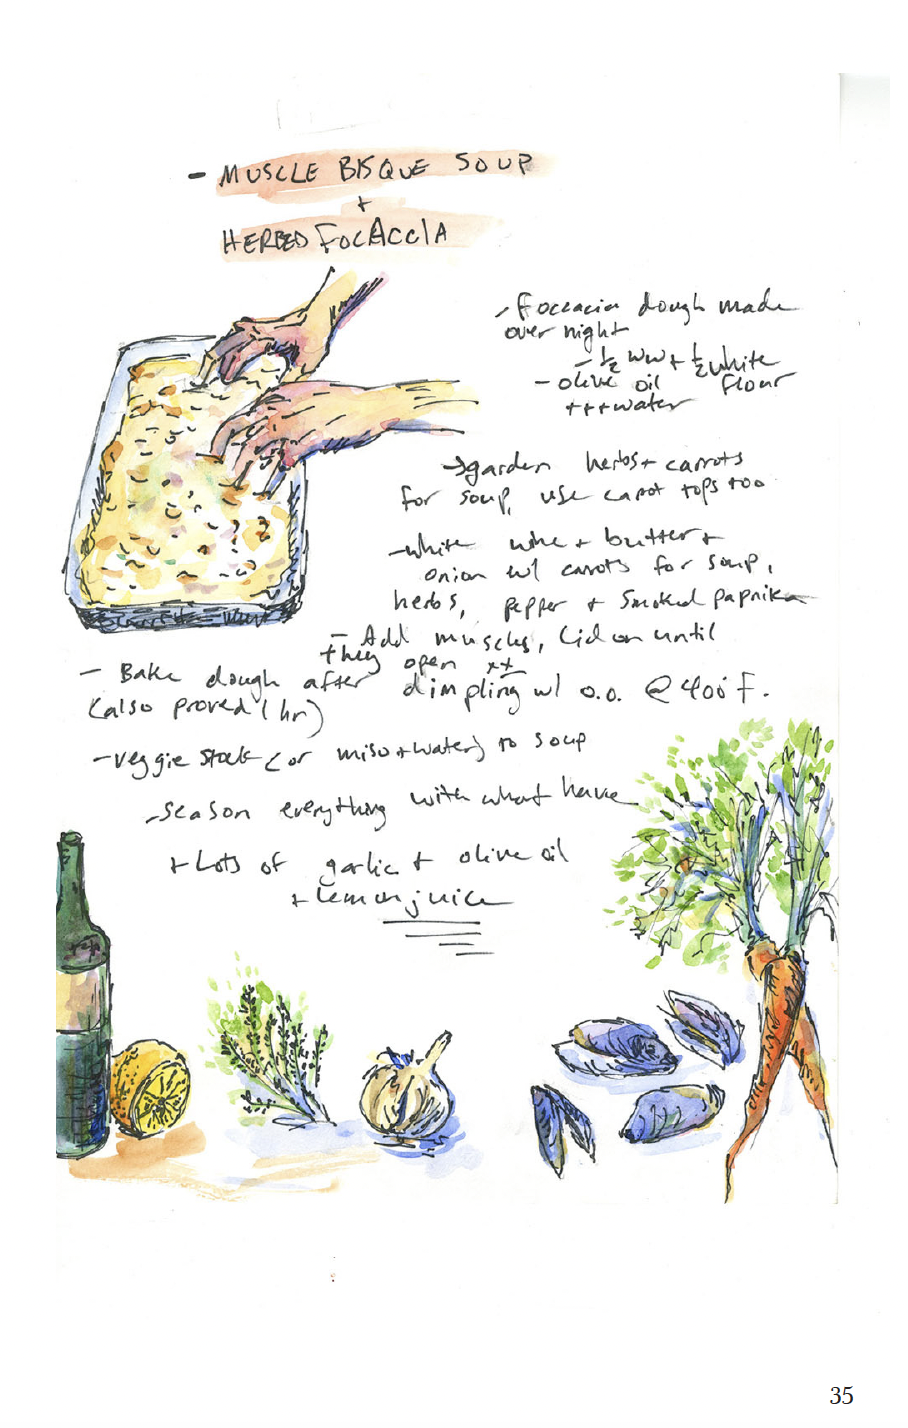 - MUSCLE BISQUE SOUP
+
HERBED FOCACCIA
- Foccacia dough made
over night
- 1/2 ww + 1/2 white
flour
- olive oil
+++ water
→ garden herbs + carrots
for soup, use carot tops too
- white wine + butter +
onion w/ carrots for soup,
herbs, pepper + smoked paprika
- Add muscles, lid on until
they open
- Bake dough after dimpling w/ o.o. @ 400°F.
(also proved 1 hr)
- veggie stock (or miso + water) to soup
- season everything with what have
+ Lots of garlic + olive oil
+ lemon juice
35